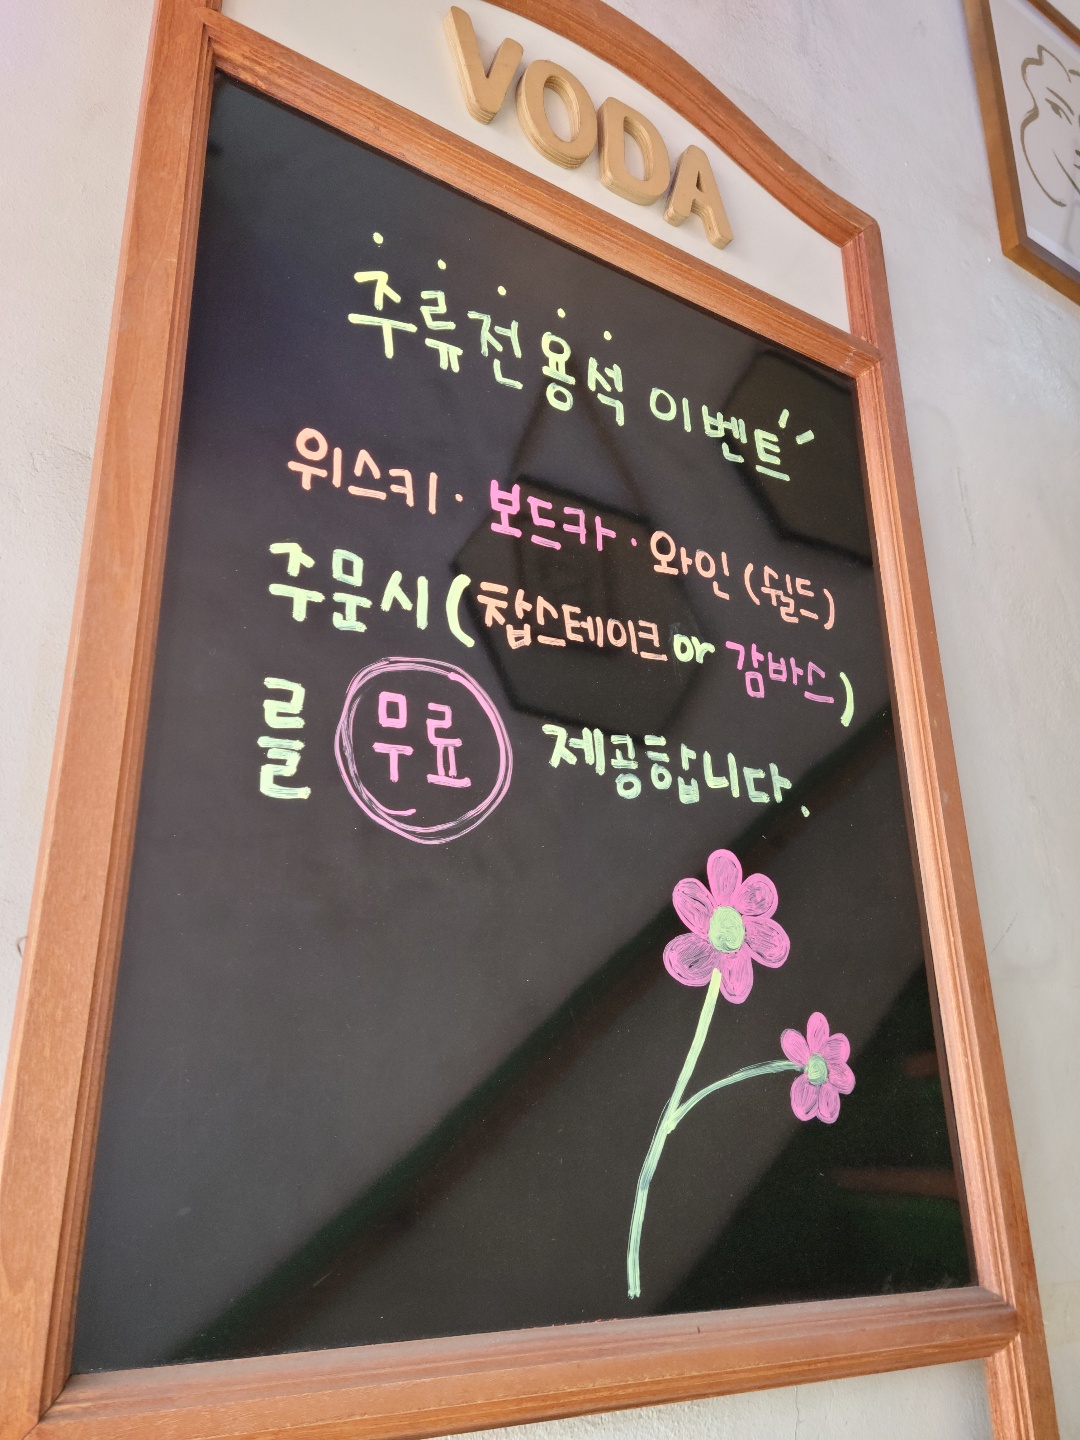 VODA
주류전용석 이벤트
위스키· 보드카· 와인 (쉴드)
주문시 (찹스테이크 or 감바스)
를 무료 제공합니다.